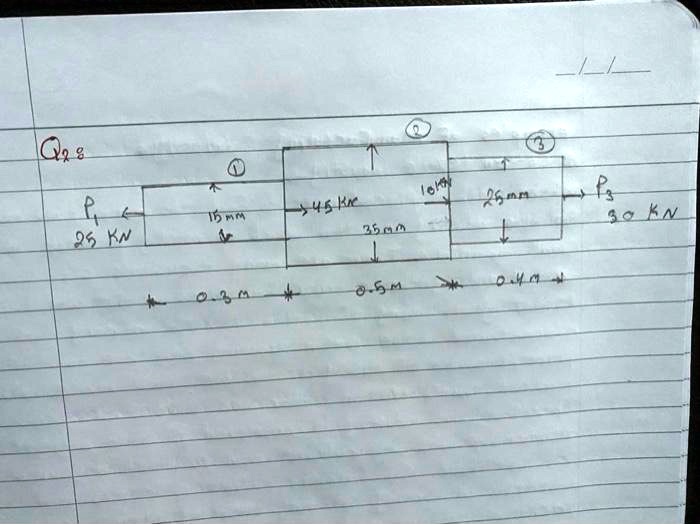 _/_/_
Q2 :
①
②
③
P1
25 KN
15 mm
45 KN
35 mm
10 KN
25 mm
P3
30 KN
0.3 m
0.5 m
0.4 m